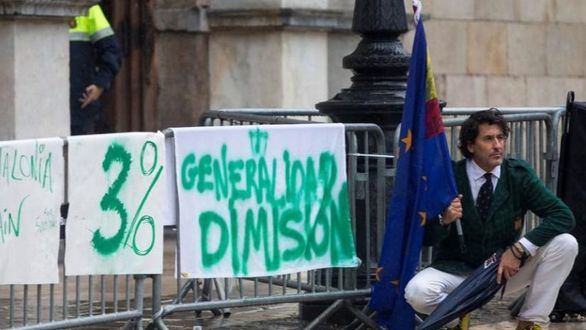 ALONIA
IN
3%
GENERALIDAD
DIMISIÓN